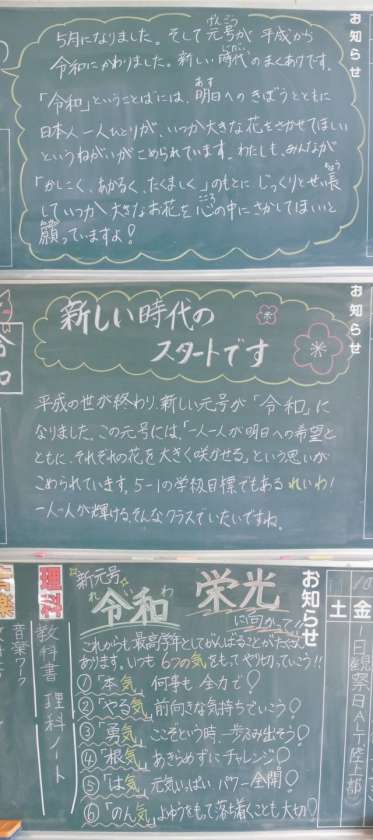 お知らせ
5月になりました。そして元号が平成から
げんごう
令和にかわりました。新しい時代のまくあけです。
じだい
「令和」ということばには、明日へのきぼうとともに
あす
日本人一人ひとりが、いつか大きな花をさかせてほしい
というねがいがこめられています。わたしも、みんなが
「かしこく、あかるく、たくましく」のもとにじっくりとせい長
ちょう
していつか大きなお花を心の中にさかしてほしいと
こころ
願っていますよ!
ねが
お知らせ
新しい時代の
スタートです
令和
平成の世が終わり、新しい元号が「令和」に
なりました。この元号には、「一人一人が明日への希望と
ともに、それぞれの花を大きく咲かせる」という思いが
こめられています。5-1の学級目標でもあるれいわ!
一人一人が輝ける、そんなクラスでいたいですね。
お知らせ
新元号
令和
れいわ
栄光
に向かって!!
これからも最高学年としてがんばることがたくさん
あります。いつも6つの気をもってやり切っていこう!!
①「本気」何事も全力で!
②「やる気」前向きな気持ちでいこう!
③「勇気」ここぞという時、一歩ふみ出そう!
④「根気」あきらめずにチャレンジ!
⑤「は気」元気いっぱいパワー全開!
⑥「のん気」よゆうをもって落ち着くことも大切!
理科
教科書 理科ノート
音楽
音楽ワーク
10
土
金